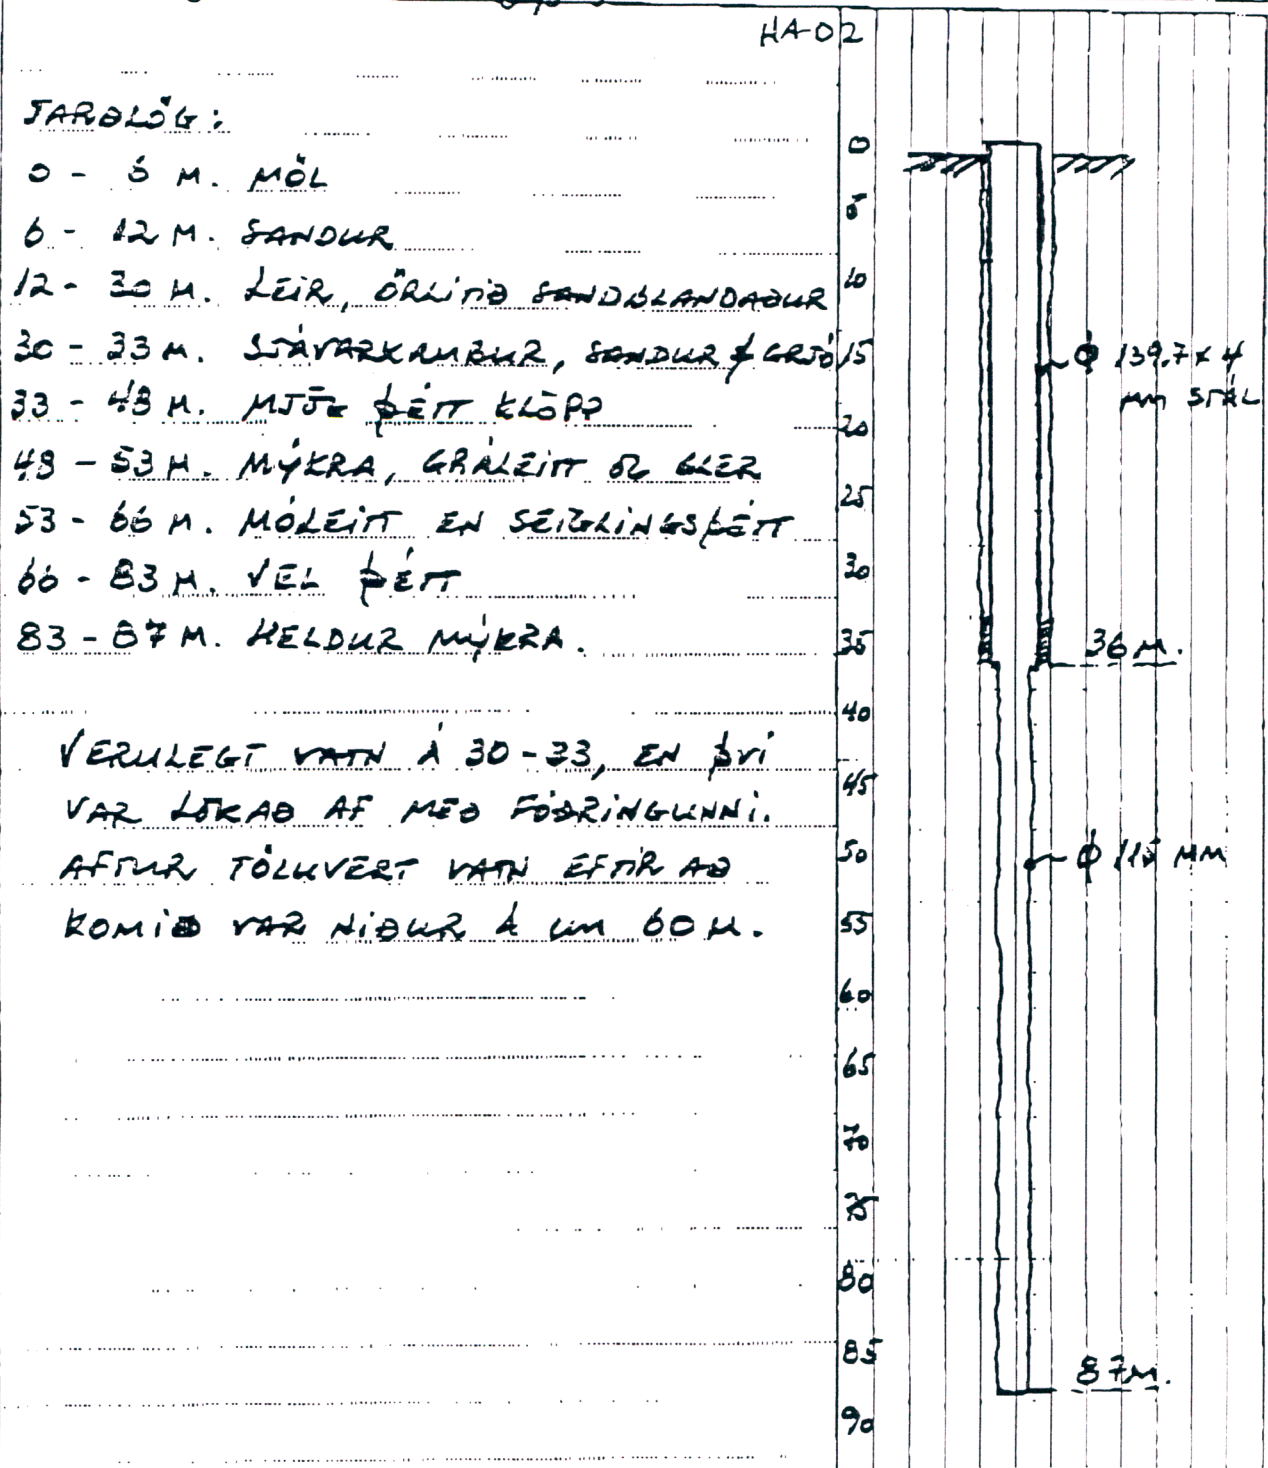 HA-02
JARÐLÖG:
0 - 6 M. MÖL
6 - 12 M. SANDUR
12 - 30 M. LEIR, ÖRLITIÐ SANDBLANDAÐUR
30 - 33 M. SJÁVARKAMBUR, SANDUR & GRJÓ
33 - 48 M. MJÖG ÞÉTT KLÖPP
48 - 53 M. MÝKRA, GRÁLEITT OG GLER
53 - 66 M. MÓLEITT EN SEIGLINGSÞÉTT
66 - 83 M. VEL ÞÉTT
83 - 87 M. HELDUR MÝKRA.
VERULEGT VATN Á 30-33, EN ÞVÍ
VAR LOKAÐ AF MEÐ FÓÐRINGUNNI.
AFTUR TÖLUVERT VATN EFTIR AÐ
KOMIÐ VAR NIÐUR Á UM 60 M.
0
5
10
15
20
25
30
35
40
45
50
55
60
65
70
75
80
85
90
Φ 139,7 x 4
MM STÁL
36 M.
Φ 115 MM
87 M.